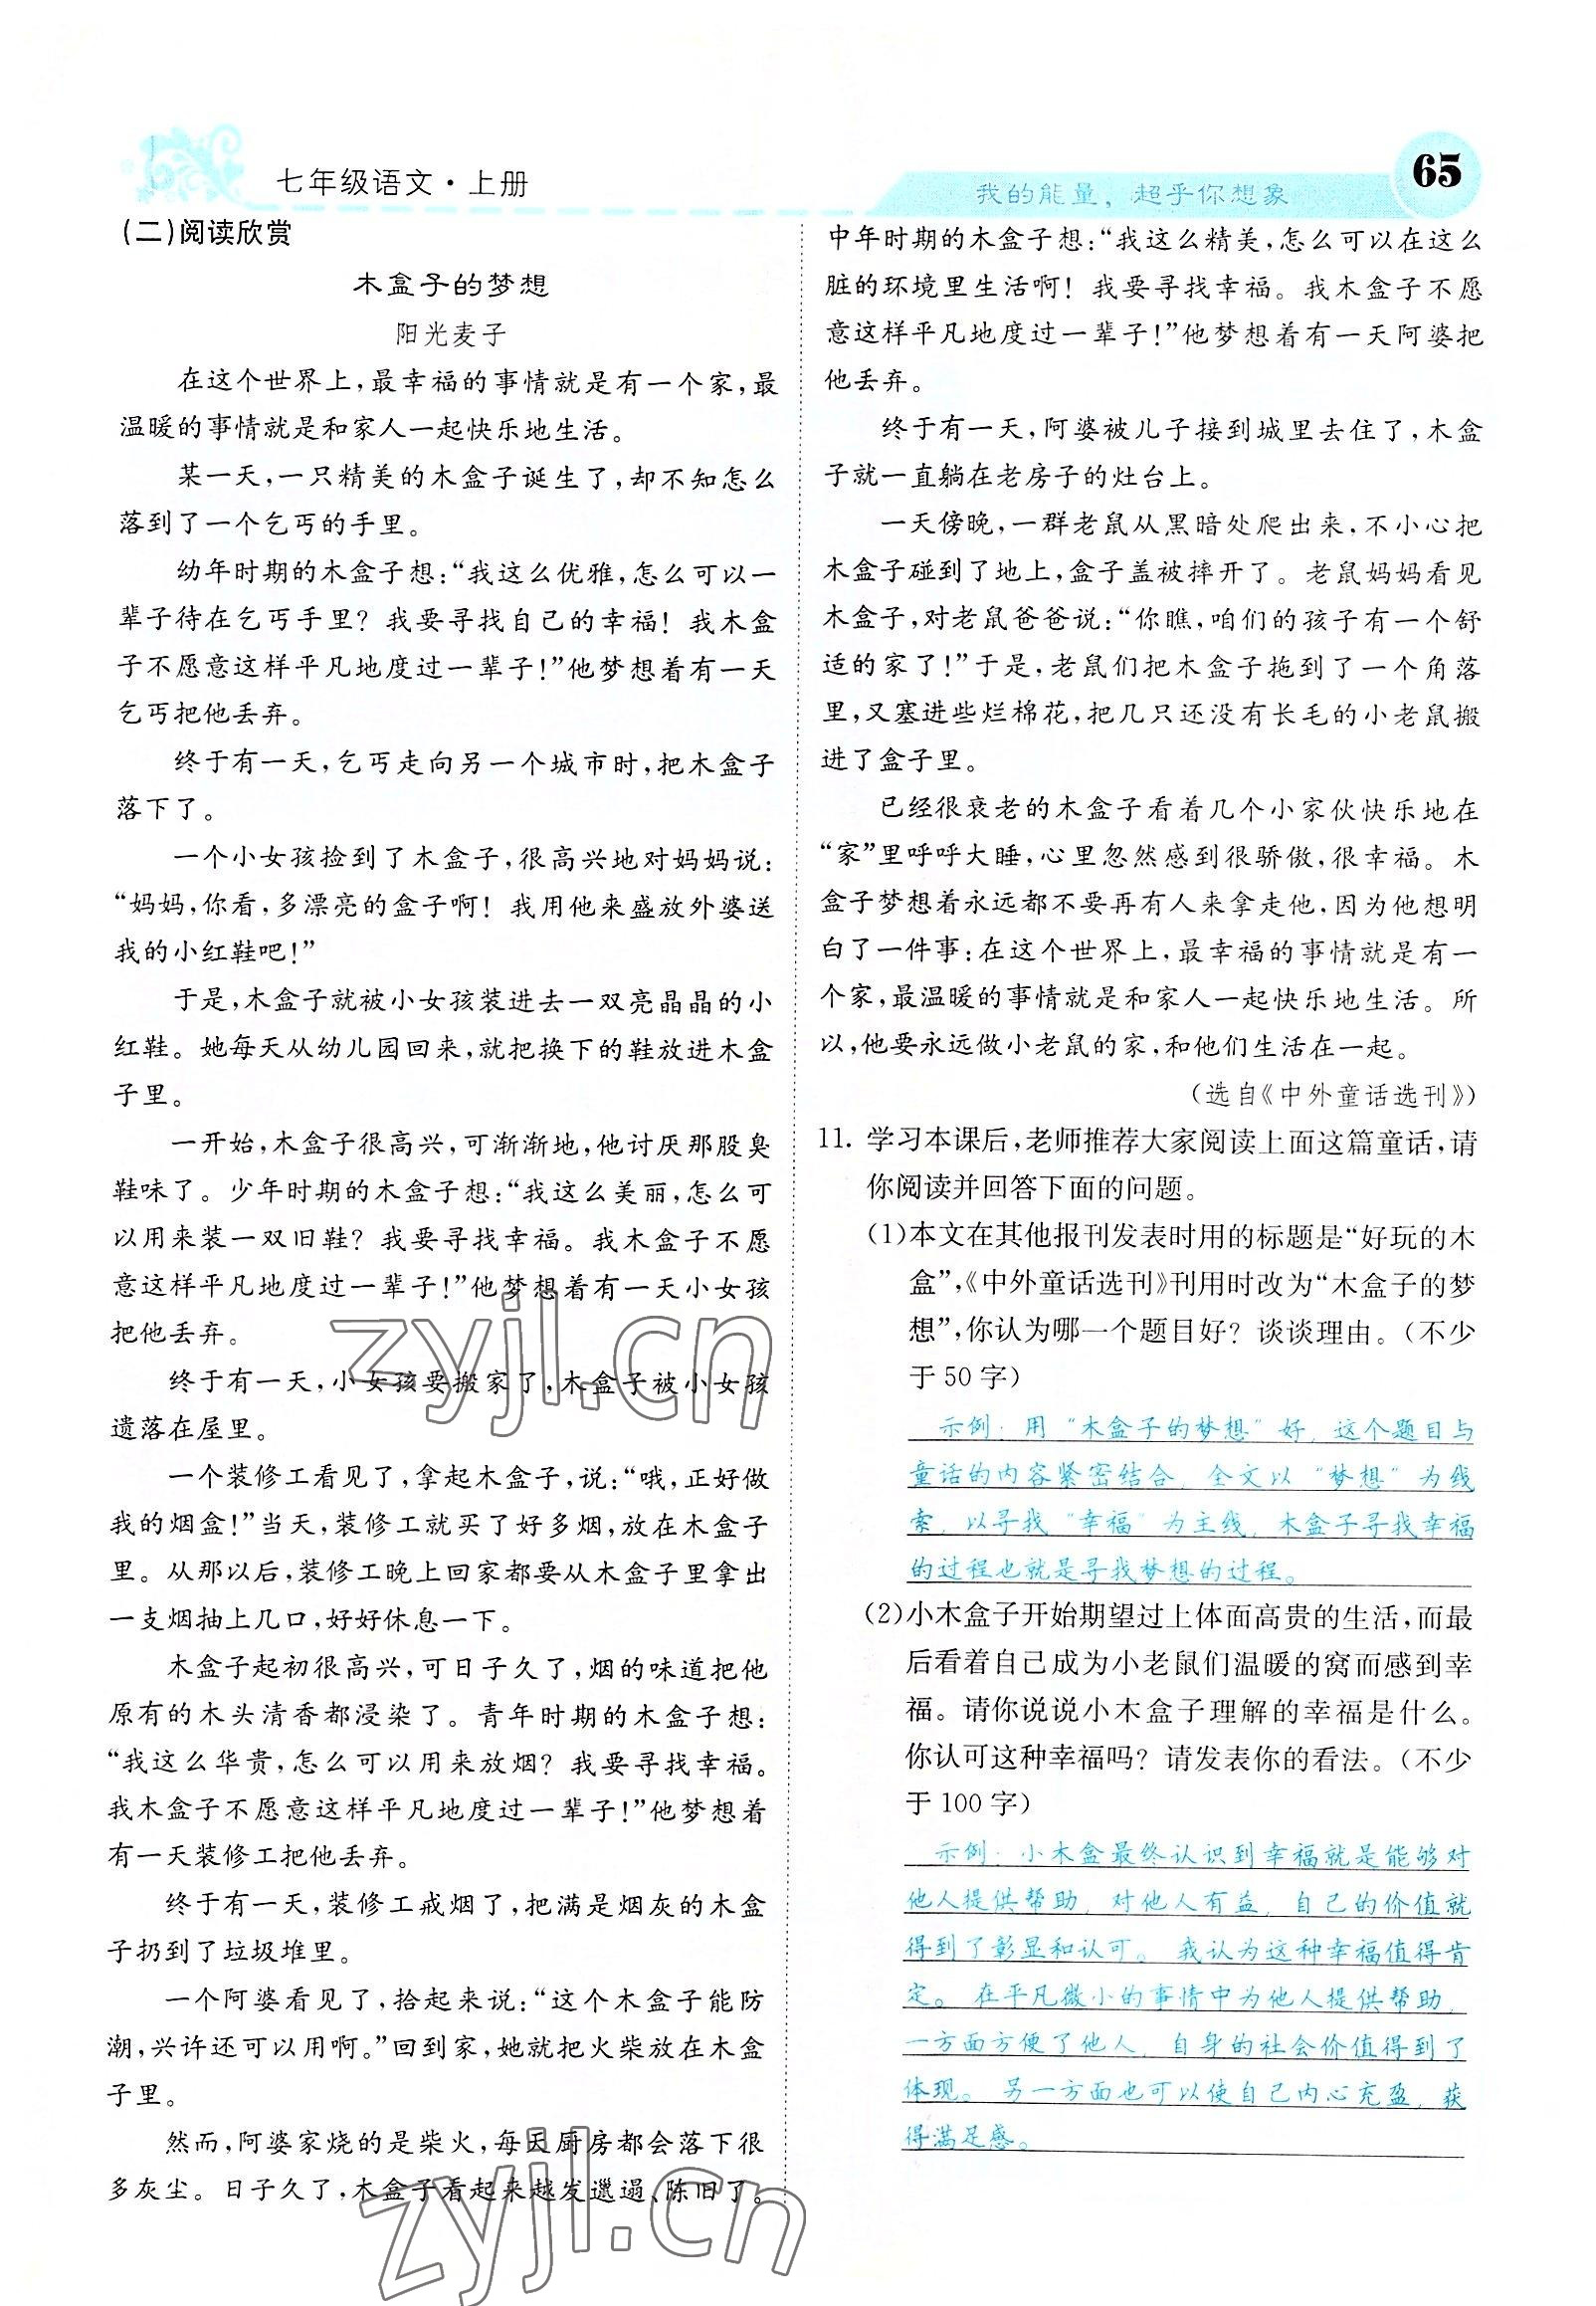 七年级语文·上册
我的能量，超乎你想象
65
(二)阅读欣赏
木盒子的梦想
阳光麦子
在这个世界上,最幸福的事情就是有一个家,最
温暖的事情就是和家人一起快乐地生活。
某一天,一只精美的木盒子诞生了,却不知怎么
落到了一个乞丐的手里。
幼年时期的木盒子想:“我这么优雅,怎么可以一
辈子待在乞丐手里? 我要寻找自己的幸福! 我木盒
子不愿意这样平凡地度过一辈子!”他梦想着有一天
乞丐把他丢弃。
终于有一天,乞丐走向另一个城市时,把木盒子
落下了。
一个小女孩捡到了木盒子,很高兴地对妈妈说:
“妈妈,你看,多漂亮的盒子啊! 我用他来盛放外婆送
我的小红鞋吧!”
于是,木盒子就被小女孩装进去一双亮晶晶的小
红鞋。她每天从幼儿园回来,就把换下的鞋放进木盒
子里。
一开始,木盒子很高兴,可渐渐地,他讨厌那股臭
鞋味了。少年时期的木盒子想:“我这么美丽,怎么可
以用来装一双旧鞋? 我要寻找幸福。我木盒子不愿
意这样平凡地度过一辈子!”他梦想着有一天小女孩
把他丢弃。
终于有一天,小女孩要搬家了,木盒子被小女孩
遗落在屋里。
一个装修工看见了,拿起木盒子,说:“哦,正好做
我的烟盒!”当天,装修工就买了好多烟,放在木盒子
里。从那以后,装修工晚上回家都要从木盒子里拿出
一支烟抽上几口,好好休息一下。
木盒子起初很高兴,可日子久了,烟的味道把他
原有的木头清香都浸染了。青年时期的木盒子想:
“我这么华贵,怎么可以用来放烟? 我要寻找幸福。
我木盒子不愿意这样平凡地度过一辈子!”他梦想着
有一天装修工把他丢弃。
终于有一天,装修工戒烟了,把满是烟灰的木盒
子扔到了垃圾堆里。
一个阿婆看见了,拾起来说:“这个木盒子能防
潮,兴许还可以用啊。”回到家,她就把火柴放在木盒
子里。
然而,阿婆家烧的是柴火,每天厨房都会落下很
多灰尘。日子久了,木盒子看起来越发邋遢、陈旧了。
中年时期的木盒子想:“我这么精美,怎么可以在这么
脏的环境里生活啊! 我要寻找幸福。我木盒子不愿
意这样平凡地度过一辈子!”他梦想着有一天阿婆把
他丢弃。
终于有一天,阿婆被儿子接到城里去住了,木盒
子就一直躺在老房子的灶台上。
一天傍晚,一群老鼠从黑暗处爬出来,不小心把
木盒子碰到了地上,盒子盖被摔开了。老鼠妈妈看见
木盒子,对老鼠爸爸说:“你瞧,咱们的孩子有一个舒
适的家了!”于是,老鼠们把木盒子拖到了一个角落
里,又塞进些烂棉花,把几只还没有长毛的小老鼠搬
进了盒子里。
已经很衰老的木盒子看着几个小家伙快乐地在
“家”里呼呼大睡,心里忽然感到很骄傲,很幸福。木
盒子梦想着永远都不要再有人来拿走他,因为他想明
白了一件事:在这个世界上,最幸福的事情就是有一
个家,最温暖的事情就是和家人一起快乐地生活。所
以,他要永远做小老鼠的家,和他们生活在一起。
(选自《中外童话选刊》)
11. 学习本课后,老师推荐大家阅读上面这篇童话,请
你阅读并回答下面的问题。
(1)本文在其他报刊发表时用的标题是“好玩的木
盒”,《中外童话选刊》刊用时改为“木盒子的梦
想”,你认为哪一个题目好? 谈谈理由。(不少
于 50 字)
示例:用“木盒子的梦想”好,这个题目与
童话的内容紧密结合,全文以“梦想”为线
索,以寻找“幸福”为主线,木盒子寻找幸福
的过程也就是寻找梦想的过程。
(2)小木盒子开始期望过上体面高贵的生活,而最
后看着自己成为小老鼠们温暖的窝而感到幸
福。请你说说小木盒子理解的幸福是什么。
你认可这种幸福吗? 请发表你的看法。(不少
于 100 字)
示例:小木盒最终认识到幸福就是能够对
他人提供帮助,对他人有益,自己的价值就
得到了彰显和认可。我认为这种幸福值得肯
定。在平凡微小的事情中为他人提供帮助,
一方面方便了他人,自身的社会价值得到了
体现。另一方面也可以使自己内心充盈,获
得满足感。
zyjl.cn
zyjl.cn